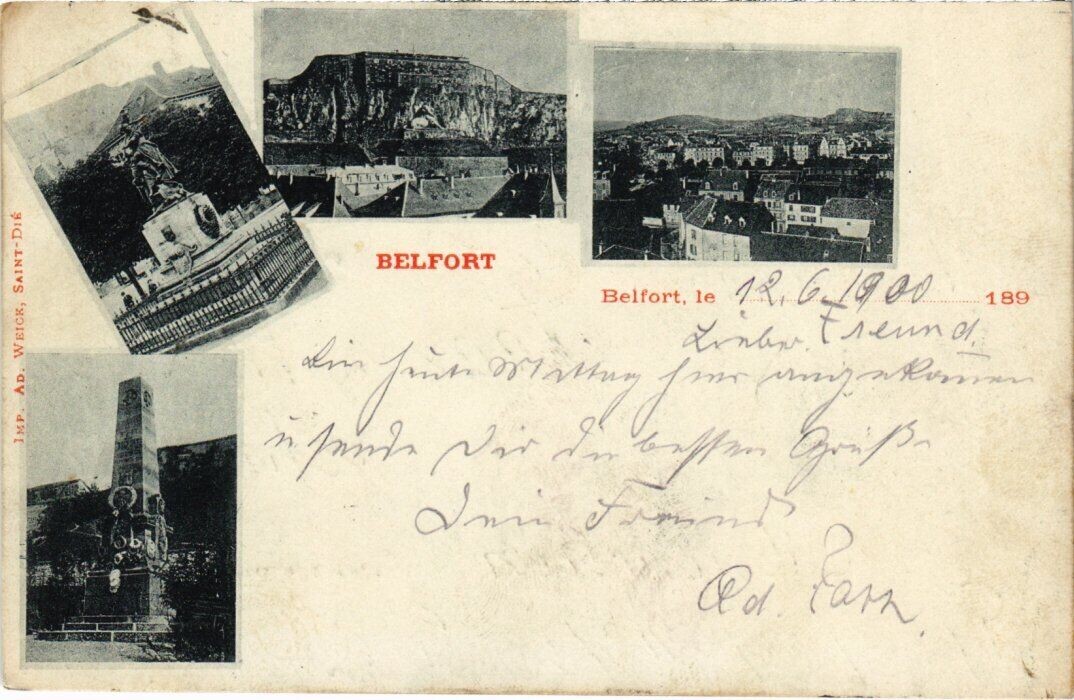 BELFORT
Belfort, le 12.6.1900 189
Lieber Freund.
Bin heute Mittag hier angekommen
u sende Dir die besten Grüße
Dein Freund
Ed.
IMP. AD. WEICK, SAINT-DIÉ